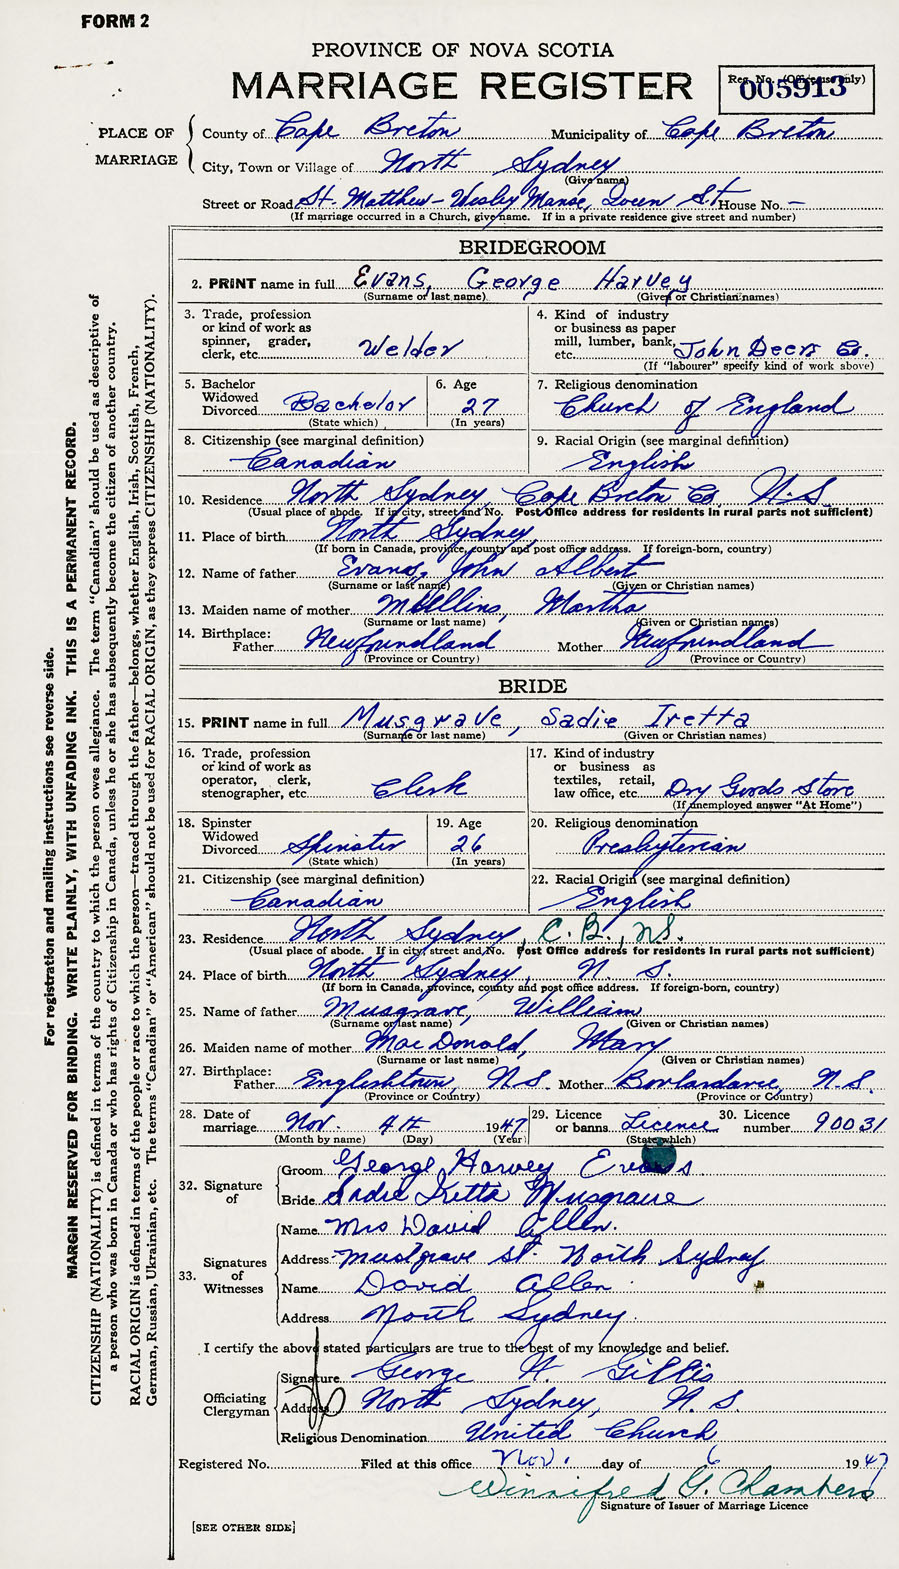 FORM 2
PROVINCE OF NOVA SCOTIA
MARRIAGE REGISTER
Reg. No. (Office use only)
005913
PLACE OF MARRIAGE
County of Cape Breton Municipality of Cape Breton
City, Town or Village of North Sydney
(Give name)
Street or Road St. Matthew-Wesley Manse, Queen St House No. -
(If marriage occurred in a Church, give name. If in a private residence give street and number)
BRIDEGROOM
2. PRINT name in full Evans, George Harvey
(Surname or last name) (Given or Christian names)
3. Trade, profession or kind of work as spinner, grader, clerk, etc. Welder
4. Kind of industry or business as paper mill, lumber, bank, etc. John Deers Co.
(If "labourer" specify kind of work above)
5. Bachelor Widowed Divorced Bachelor
(State which)
6. Age 27
(In years)
7. Religious denomination
Church of England
8. Citizenship (see marginal definition)
Canadian
9. Racial Origin (see marginal definition)
English
10. Residence North Sydney, Cape Breton Co, N.S.
(Usual place of abode. If in city, street and No. Post Office address for residents in rural parts not sufficient)
11. Place of birth North Sydney
(If born in Canada, province, county and post office address. If foreign-born, country)
12. Name of father Evans, John Albert
(Surname or last name) (Given or Christian names)
13. Maiden name of mother Martha
(Surname or last name) (Given or Christian names)
14. Birthplace: Father Newfoundland Mother Newfoundland
(Province or Country) (Province or Country)
BRIDE
15. PRINT name in full Musgrave, Sadie Iretta
(Surname or last name) (Given or Christian names)
16. Trade, profession or kind of work as operator, clerk, stenographer, etc. Clerk
17. Kind of industry or business as textiles, retail, law office, etc. Dry Goods Store
(If unemployed answer "At Home")
18. Spinster Widowed Divorced Spinster
(State which)
19. Age 26
(In years)
20. Religious denomination
Presbyterian
21. Citizenship (see marginal definition)
Canadian
22. Racial Origin (see marginal definition)
English
23. Residence North Sydney, C.B., N.S.
(Usual place of abode. If in city, street and No. Post Office address for residents in rural parts not sufficient)
24. Place of birth North Sydney, N.S.
(If born in Canada, province, county and post office address. If foreign-born, country)
25. Name of father Musgrave, William
(Surname or last name) (Given or Christian names)
26. Maiden name of mother MacDonald, Mary
(Surname or last name) (Given or Christian names)
27. Birthplace: Father Englishtown, N.S. Mother Boulardarie, N.S.
(Province or Country) (Province or Country)
28. Date of marriage Nov. 4th 1947
(Month by name) (Day) (Year)
29. Licence or banns Licence
(State which)
30. Licence number 90031
32. Signature of
Groom George Harvey Evans
Bride Sadie Iretta Musgrave
33. Signatures of Witnesses
Name Mrs David Allen.
Address Musgrave St. North Sydney
Name David Allen
Address North Sydney.
I certify the above stated particulars are true to the best of my knowledge and belief.
Officiating Clergyman
Signature George N. Gillis
Address North Sydney, N.S.
Religious Denomination United Church
Registered No. Filed at this office Nov. day of 6 1947
Winnifred G. Chambers
Signature of Issuer of Marriage Licence
[SEE OTHER SIDE]
For registration and mailing instructions see reverse side.
MARGIN RESERVED FOR BINDING. WRITE PLAINLY, WITH UNFADING INK. THIS IS A PERMANENT RECORD.
CITIZENSHIP (NATIONALITY) is defined in terms of the country to which the person owes allegiance. The term "Canadian" should be used as descriptive of
a person who was born in Canada or who has rights of Citizenship in Canada, unless he or she has subsequently become the citizen of another country.
RACIAL ORIGIN is defined in terms of the people or race to which the person—traced through the father—belongs, whether English, Irish, Scottish, French,
German, Russian, Ukrainian, etc. The terms "Canadian" or "American" should not be used for RACIAL ORIGIN, as they express CITIZENSHIP (NATIONALITY).